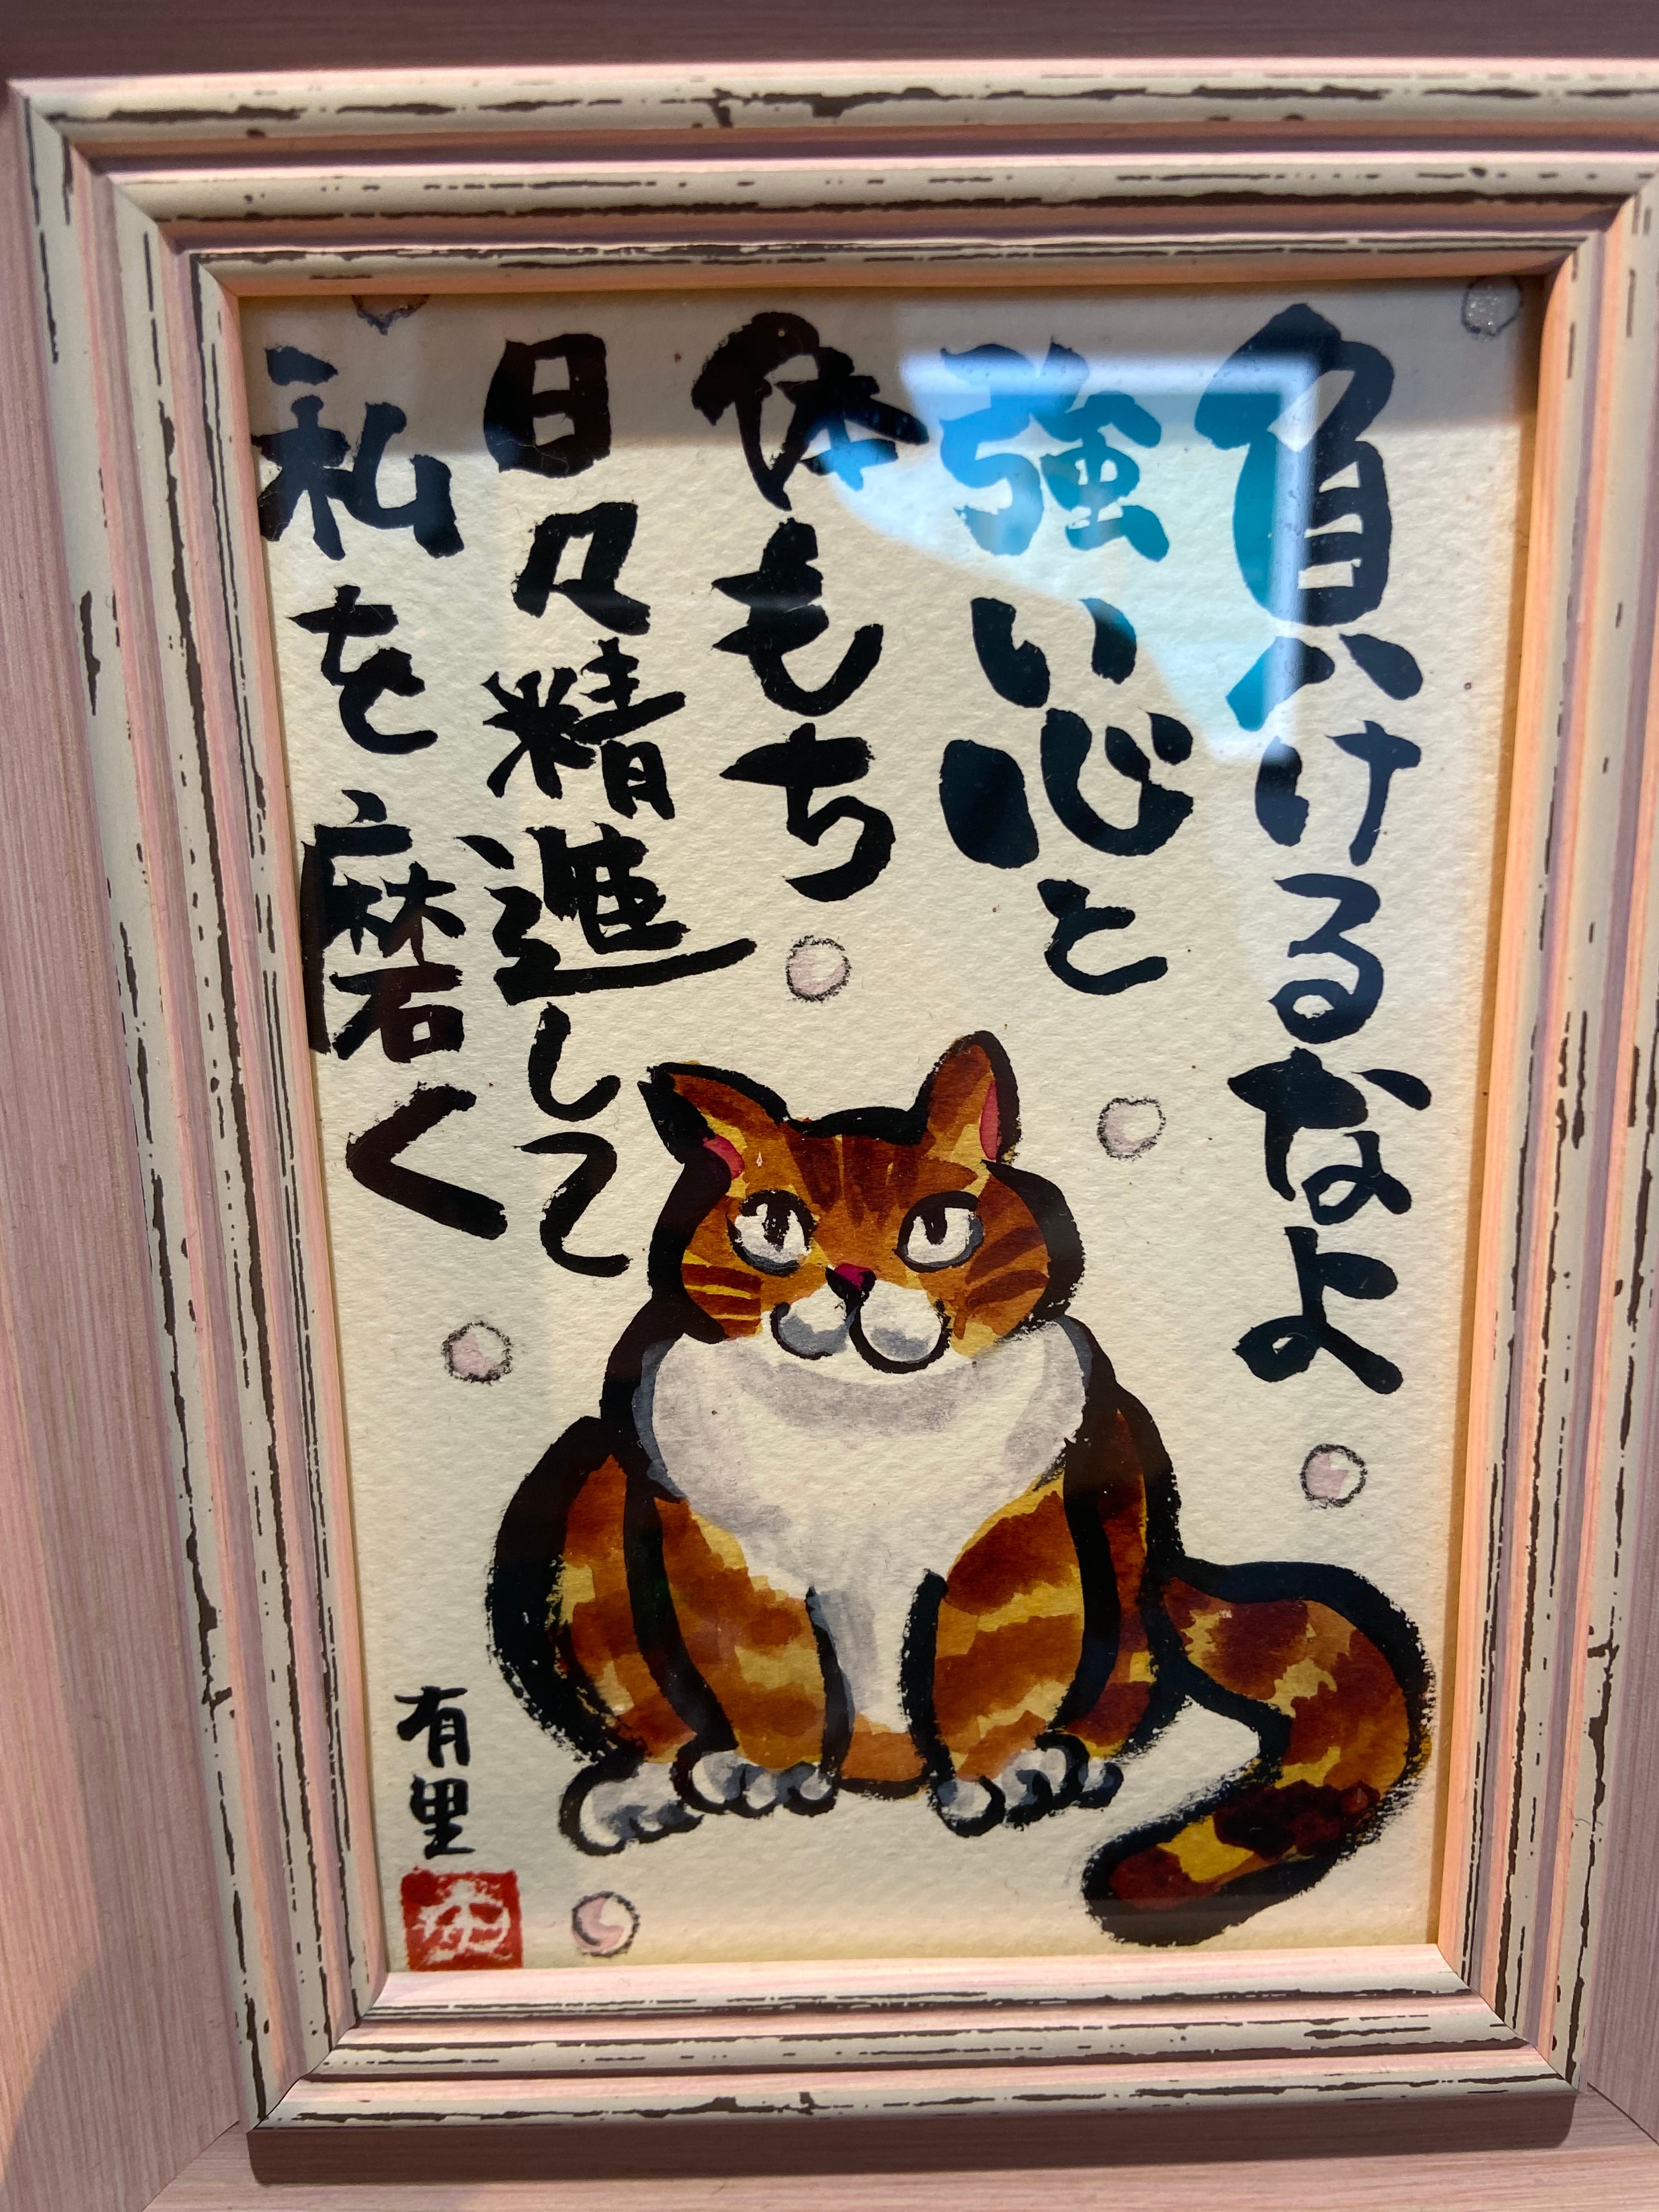 負けるなよ
強い心と
体もち
日々精進して
私を磨く
有里